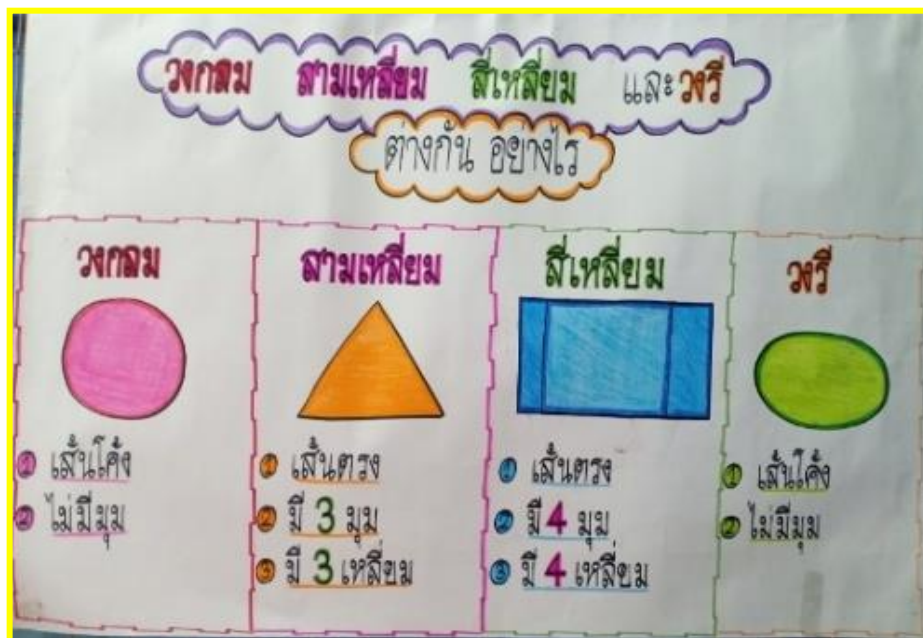 วงกลม สามเหลี่ยม สี่เหลี่ยม และวงรี
ต่างกัน อย่างไร
วงกลม
① เส้นโค้ง
② ไม่มีมุม
สามเหลี่ยม
① เส้นตรง
② มี 3 มุม
③ มี 3 เหลี่ยม
สี่เหลี่ยม
① เส้นตรง
② มี 4 มุม
③ มี 4 เหลี่ยม
วงรี
① เส้นโค้ง
② ไม่มีมุม